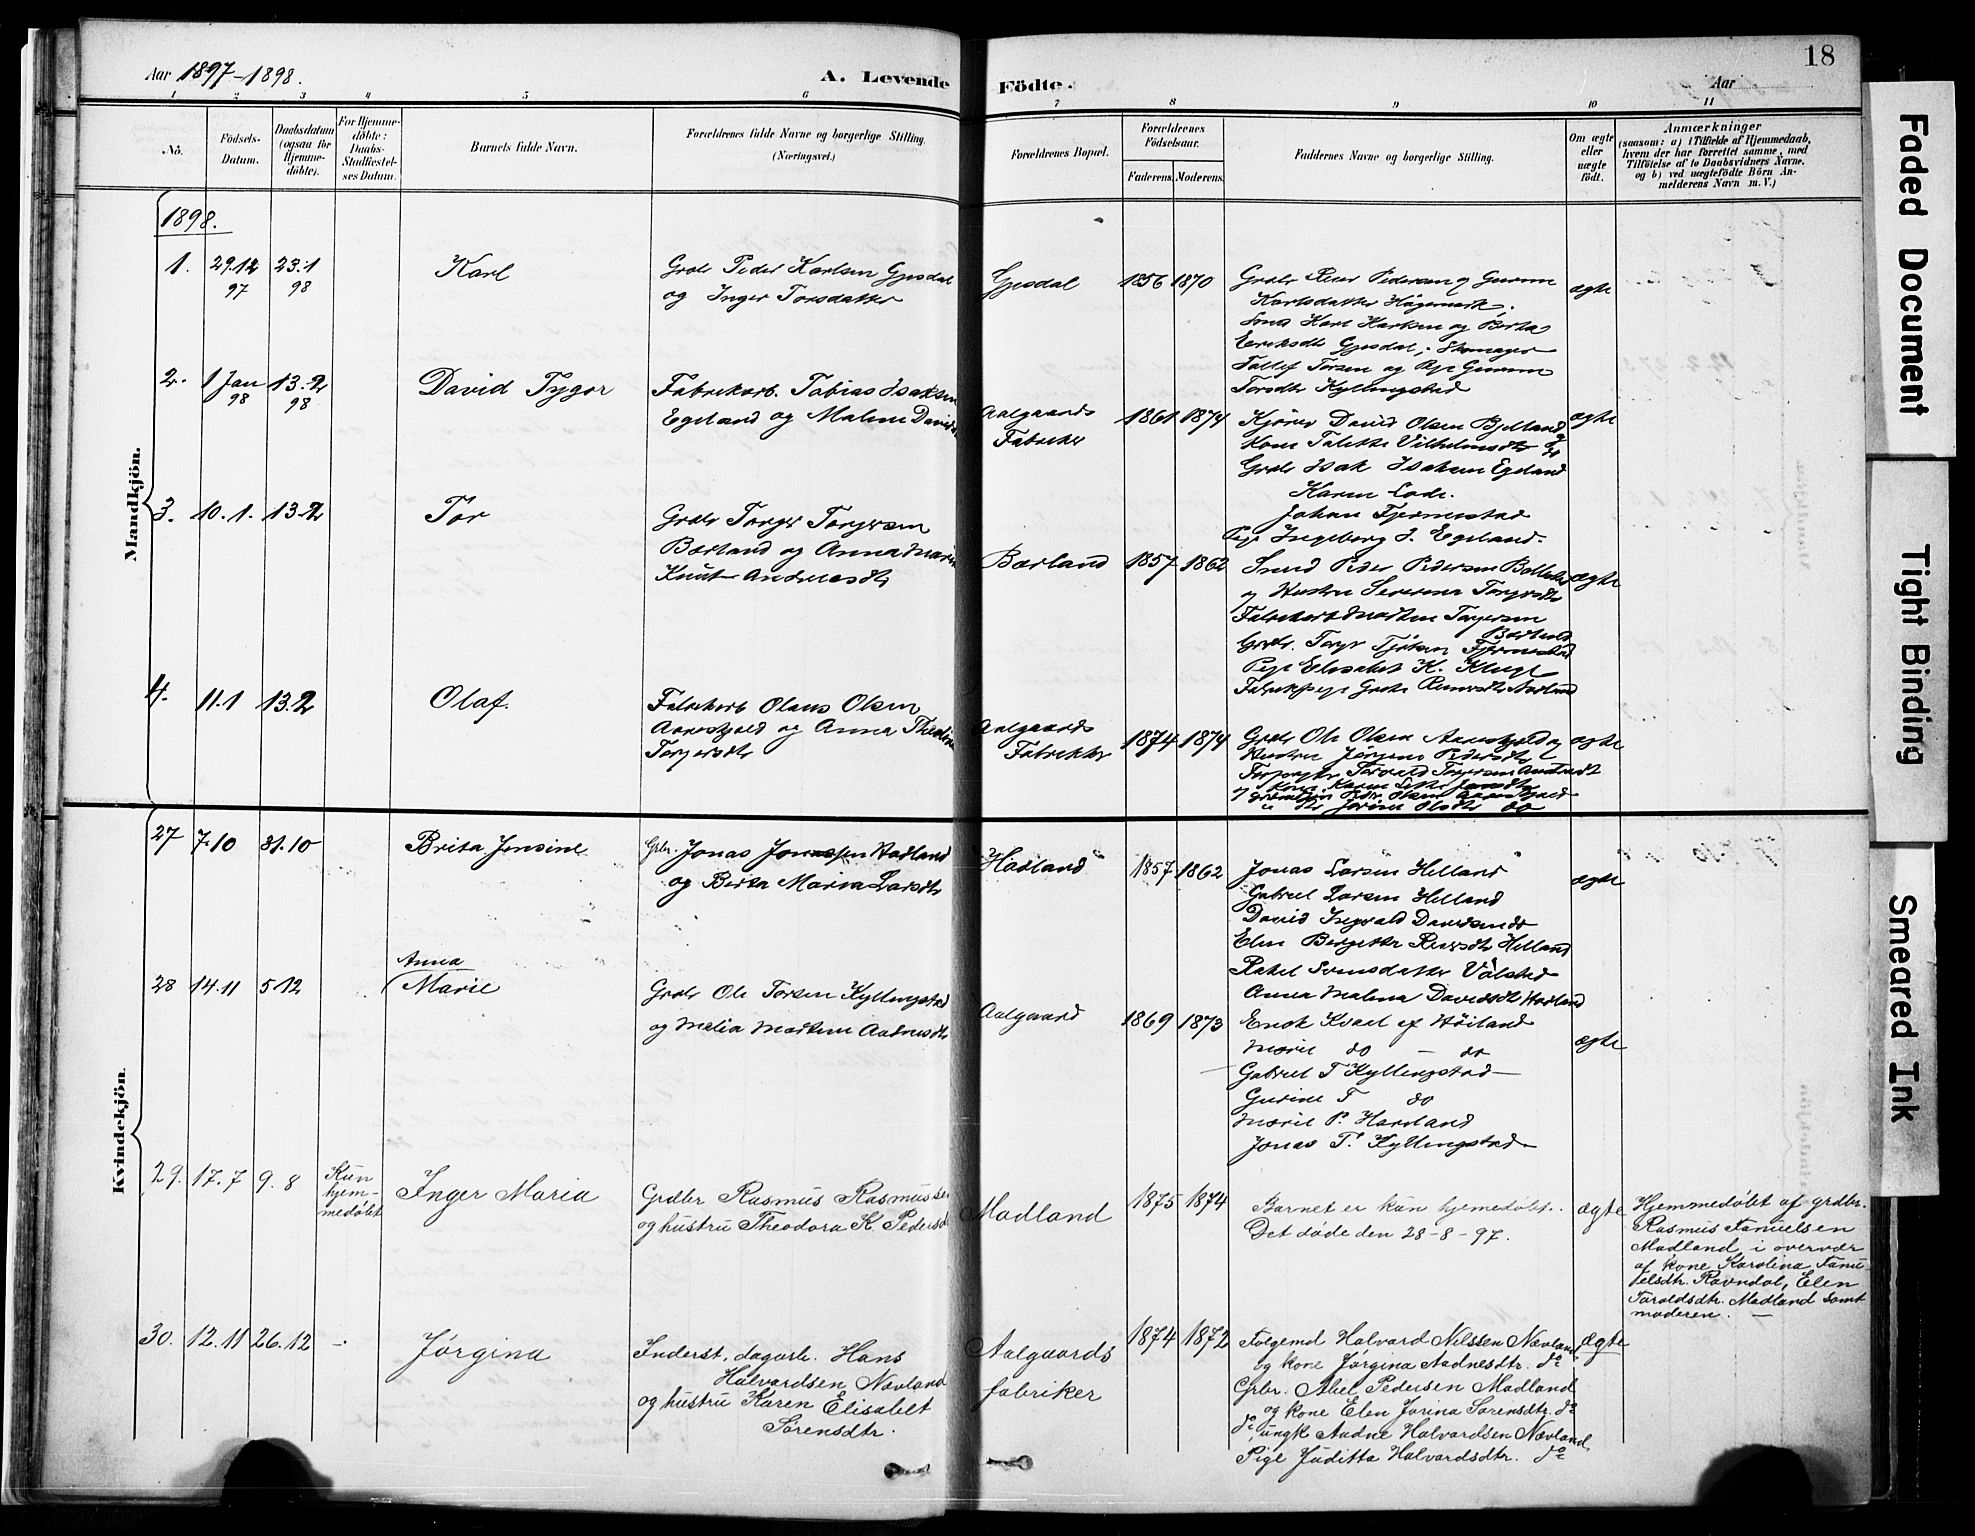 Aar 1897-1898.
A. Levende
Födte.
18
Aar
1 2 3 4 5 6 7 8 9 10 11
Nô.
Födsels-
Datum.
Daabsdatum
(ogsaa för
Hjemme-
döbte).
For Hjemme-
döbte:
Daabs-
Stadfæstel-
ses Datum.
Barnets fulde Navn.
Forældrenes fulde Navne og borgerlige Stilling.
(Næringsvei.)
Forældrenes Bopæl.
Forældrenes
Födselsaar.
Faderens. Moderens.
Faddernes Navne og borgerlige Stilling.
Om ægte
eller
uægte
födt.
Anmærkninger
(saasom: a) i Tilfælde af Hjemmedaab,
hvem der har forrettet samme, med
Tilföielse af to Daabsvidners Navne.
og b) ved uægtefödte Börn An-
melderens Navn m.V.)
Mandkjön.
1898.
1. 29.12 97
23.1 98
Karl
Grdbr Peder Karlsen Gjesdal
og Inger Torsdatter
Gjesdal
1856 1870
Pedersen og Gurine
Karlsdatter
Karl Karlsen og Berta
Eriksdtr Gjesdal,
Tallef Torsen og Pige Gurine
Torsdtr Kyllingstad
ægte
2. 1 Jan 98
13.2 98
David Tygor
Fabrikarb. Tobias Isaksen
Egeland og Malene Davids
Aalgaards
Fabriker
1861 1874
Kjører David Olsen Bjelland
Kone Talette Vilhelmsdtr
Grdbr Isak Isaksen Egeland
Karen Lode.
Johan Fjermestad
Pige Ingeborg I. Egeland.
ægte
3. 10.1. 13.2
Tor
Grdbr Torger Torgersen
Bærland og Anna Marie
Knut Andreasdtr
Bærland
1857 1862
Smed Peder Pedersen
og Hustru Severine Torgersdtr
Fabrikarb Morten Torgersen
Bærland
Grdbr. Torger
Pige Elisabet K.
Fabrikpige
ægte
4. 11.1 13.2
Olaf.
Fabrikarb Olaus Olsen
Aaneskjold og Anna Theoline
Torgersdtr
Aalgaards
Fabrikker
1874 1874
Grdbr Ole Olsen Aaneskjold og
Hustru Jørgine Pedersdtr
Torvald Torgersen
Olsen
Jorine Olsdtr do
ægte
Kvindekjön.
27 7.10 31.10
Brita Jensine
Grbr. Jonas Jonassen Hadland
og Berta Maria Larsdtr
Hadland
1857 1862
Jonas Larsen Helland
Gabriel Larsen Helland
David Ingvald Davidsen do
Elen Bergitte Reiersdtr Helland
Rakel Svensdatter Vølstad
Anna Malena Davidsdt Hadland
ægte
28 14.11 5.12
Anna
Marie
Grdbr Ole Torsen Kyllingstad
og Malia Martine Aadnesdtr
Aalgaard
1869 1873
Enok Kvael af Høiland
Marie do — do
Gabriel T Kyllingstad
Gurine T do
Marie P. Haaland
Jonas T. Kyllingstad
ægte
29. 17.7 9.8
Kun
hjem-
medøbt
Inger Maria
Grdbr Rasmus Rasmussen
og hustru Theodora K. Pedersd
Madland
1875 1874
Barnet er kun hjemedøbt.
Det døde den 28-8-97.
ægte
Hjemmedøbt af grdbr.
Rasmus Tanuelsen
Madland i overvær
af kone Karolina Tanu-
elsdtr. Ravndal, Elen
Taroldsdtr. Madland samt
moderen. —
30. 12.11 26.12 -
Jørgina
Inderst, dagarb. Hans
Halvardsen Nævland
og hustru Karen Elisabet
Sørensdtr.
Aalgaards
fabriker
1874 1872
Følgemd Halvard Nilssen Nævland,
og kone Jørgina Aadnesdtr. do
Grbr. Abel Pedersen Madland
og kone Elen Jorina Sørensdtr. do
do, ungk Aadne Halvardsen Nævland,
Pige Juditta Halvardsdtr. do
ægte
Faded Document
Tight Binding
Smeared Ink